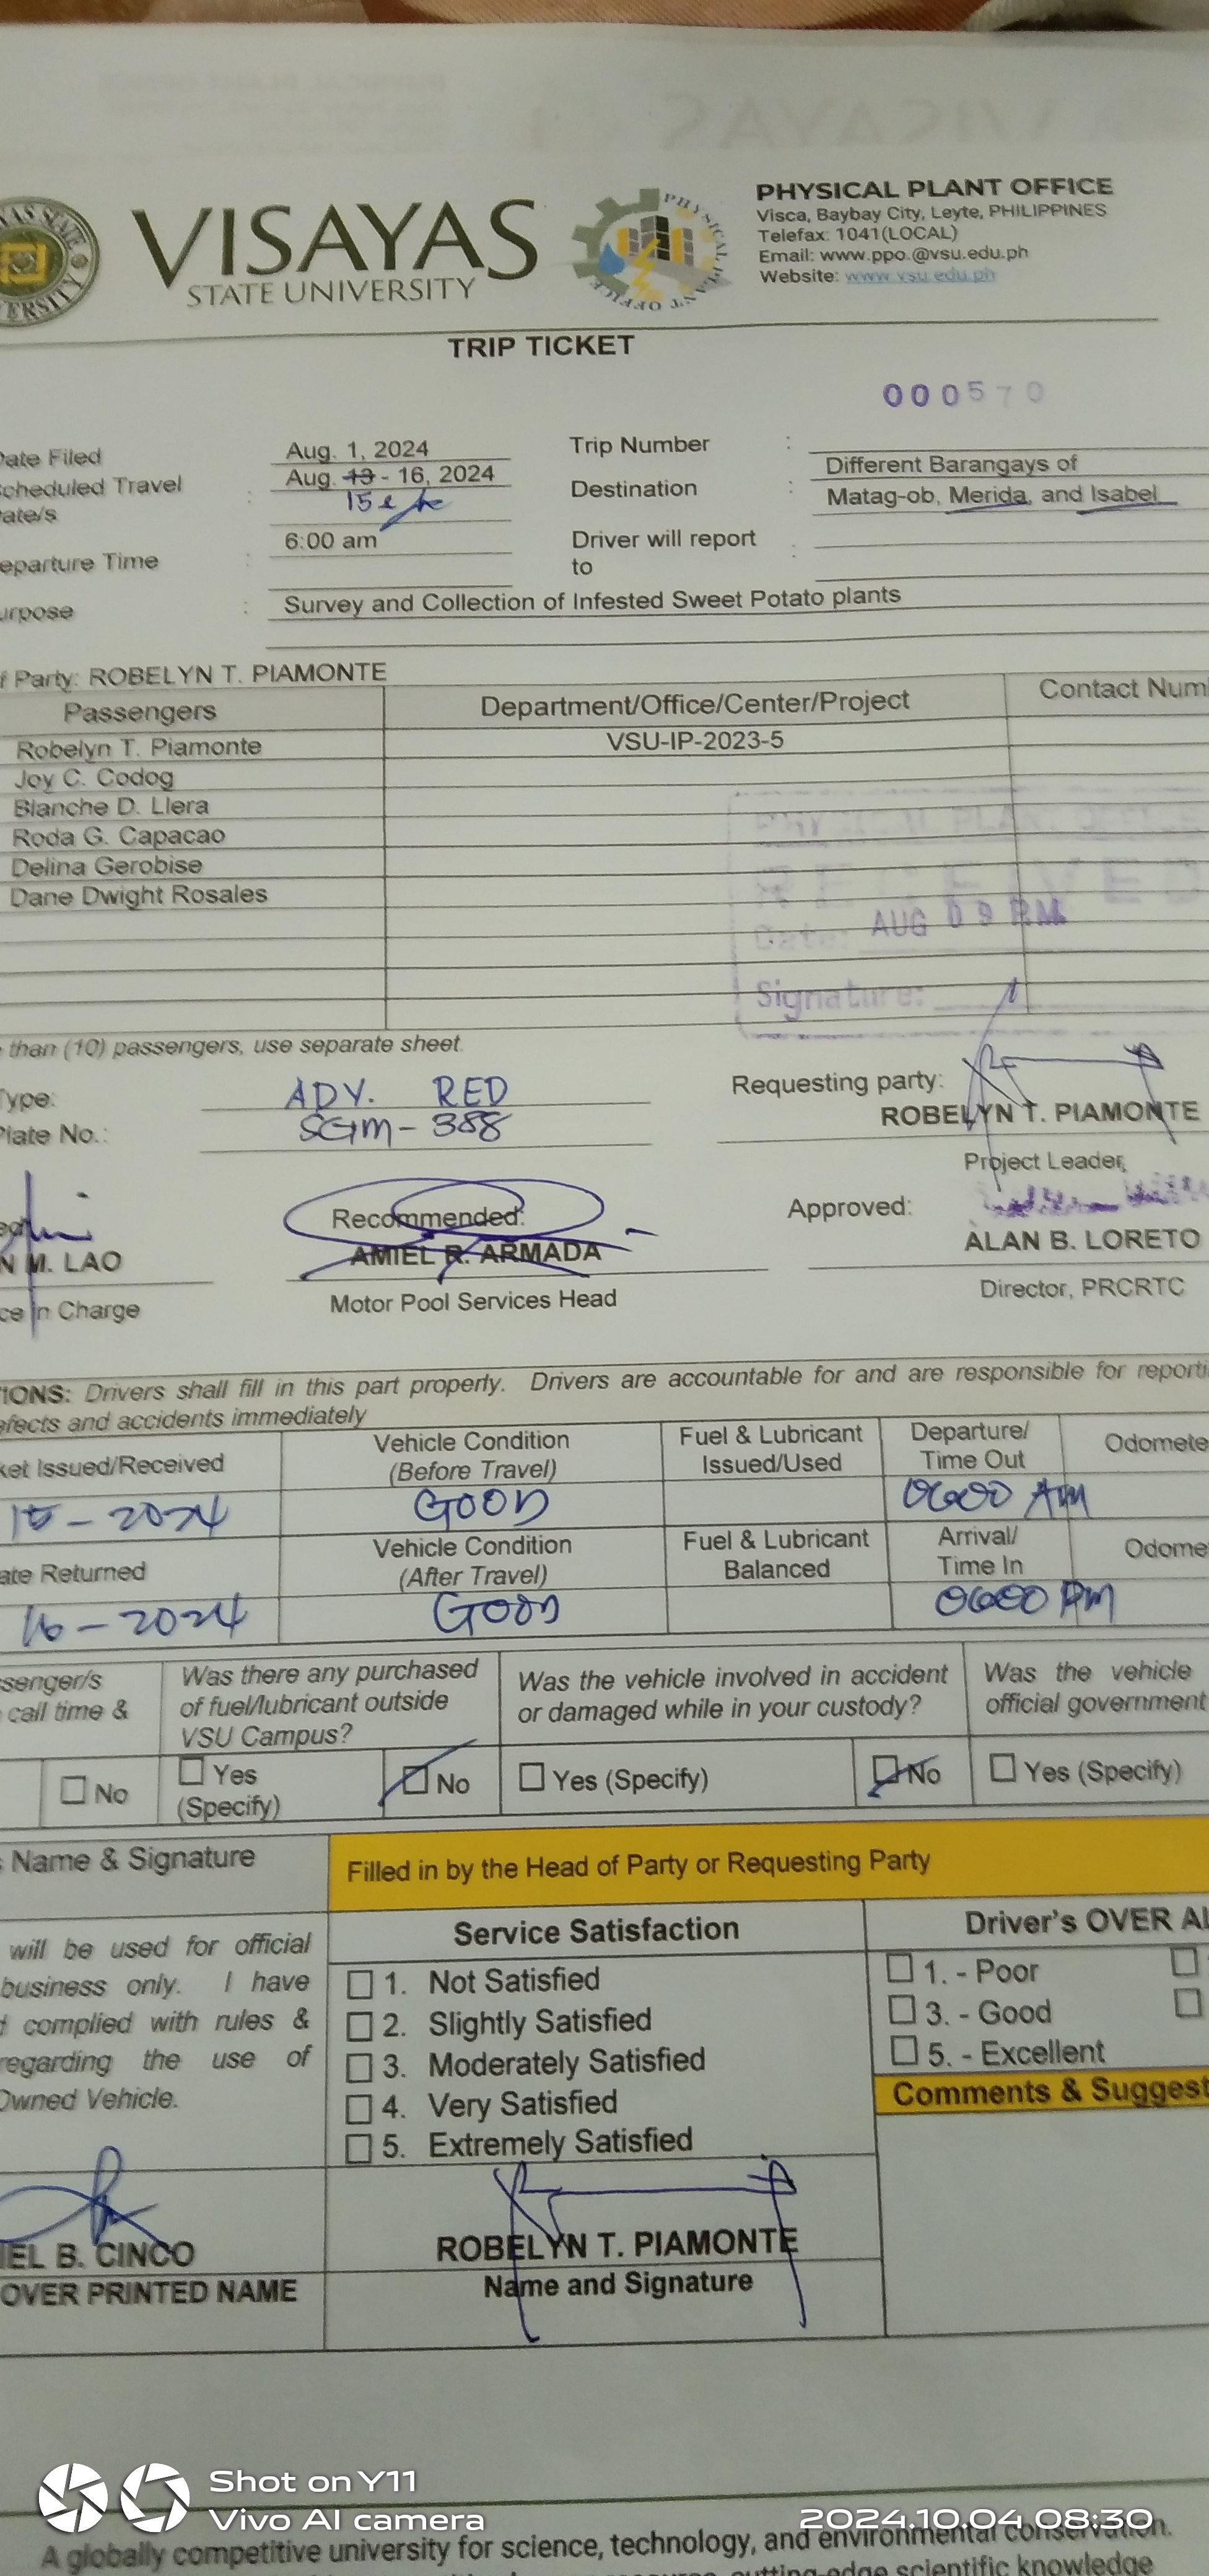 VISAYAS
STATE UNIVERSITY
PHYSICAL PLANT OFFICE
PHYSICAL PLANT OFFICE
Visca, Baybay City, Leyte, PHILIPPINES
Telefax: 1041(LOCAL)
Email: www.ppo.@vsu.edu.ph
Website: www.vsu.edu.ph
TRIP TICKET
000570
Date Filed Aug. 1, 2024 Trip Number :
Scheduled Travel : Aug. 13 - 16, 2024 Destination : Different Barangays of
15 Matag-ob, Merida, and Isabel
Departure Time : 6:00 am Driver will report to :
Purpose : Survey and Collection of Infested Sweet Potato plants
f Party: ROBELYN T. PIAMONTE
Passengers Department/Office/Center/Project Contact Num
Robelyn T. Piamonte VSU-IP-2023-5
Joy C. Codog
Blanche D. Llera
Roda G. Capacao
Delina Gerobise
Dane Dwight Rosales
PHYSICAL PLANT OFFICE
RECEIVED
Date: AUG 09 P.M.
Signature:
than (10) passengers, use separate sheet.
Type: ADV. RED Requesting party:
Plate No.: SGM-388 ROBELYN T. PIAMONTE
Project Leader,
Recommended: Approved:
N M. LAO AMIEL R. ARMADA ALAN B. LORETO
ce in Charge Motor Pool Services Head Director, PRCRTC
IONS: Drivers shall fill in this part properly. Drivers are accountable for and are responsible for reporti
efects and accidents immediately
ket Issued/Received Vehicle Condition (Before Travel) Fuel & Lubricant Issued/Used Departure/ Time Out Odomete
15-2024 GOOD 0600 AM
ate Returned Vehicle Condition (After Travel) Fuel & Lubricant Balanced Arrival/ Time In Odome
16-2024 GOOD 0600 PM
ssenger/s Was there any purchased Was the vehicle involved in accident Was the vehicle
call time & of fuel/lubricant outside or damaged while in your custody? official government
VSU Campus?
No Yes (Specify) No Yes (Specify) No Yes (Specify)
Name & Signature Filled in by the Head of Party or Requesting Party
will be used for official Service Satisfaction Driver's OVER AL
business only. I have 1. Not Satisfied 1. - Poor
complied with rules & 2. Slightly Satisfied 3. - Good
regarding the use of 3. Moderately Satisfied 5. - Excellent
Owned Vehicle. 4. Very Satisfied Comments & Suggest
5. Extremely Satisfied
IEL B. CINCO ROBELYN T. PIAMONTE
OVER PRINTED NAME Name and Signature
Shot on Y11
Vivo AI camera 2024.10.04 08:30
A globally competitive university for science, technology, and environmental conservation.
cutting-edge scientific knowledge